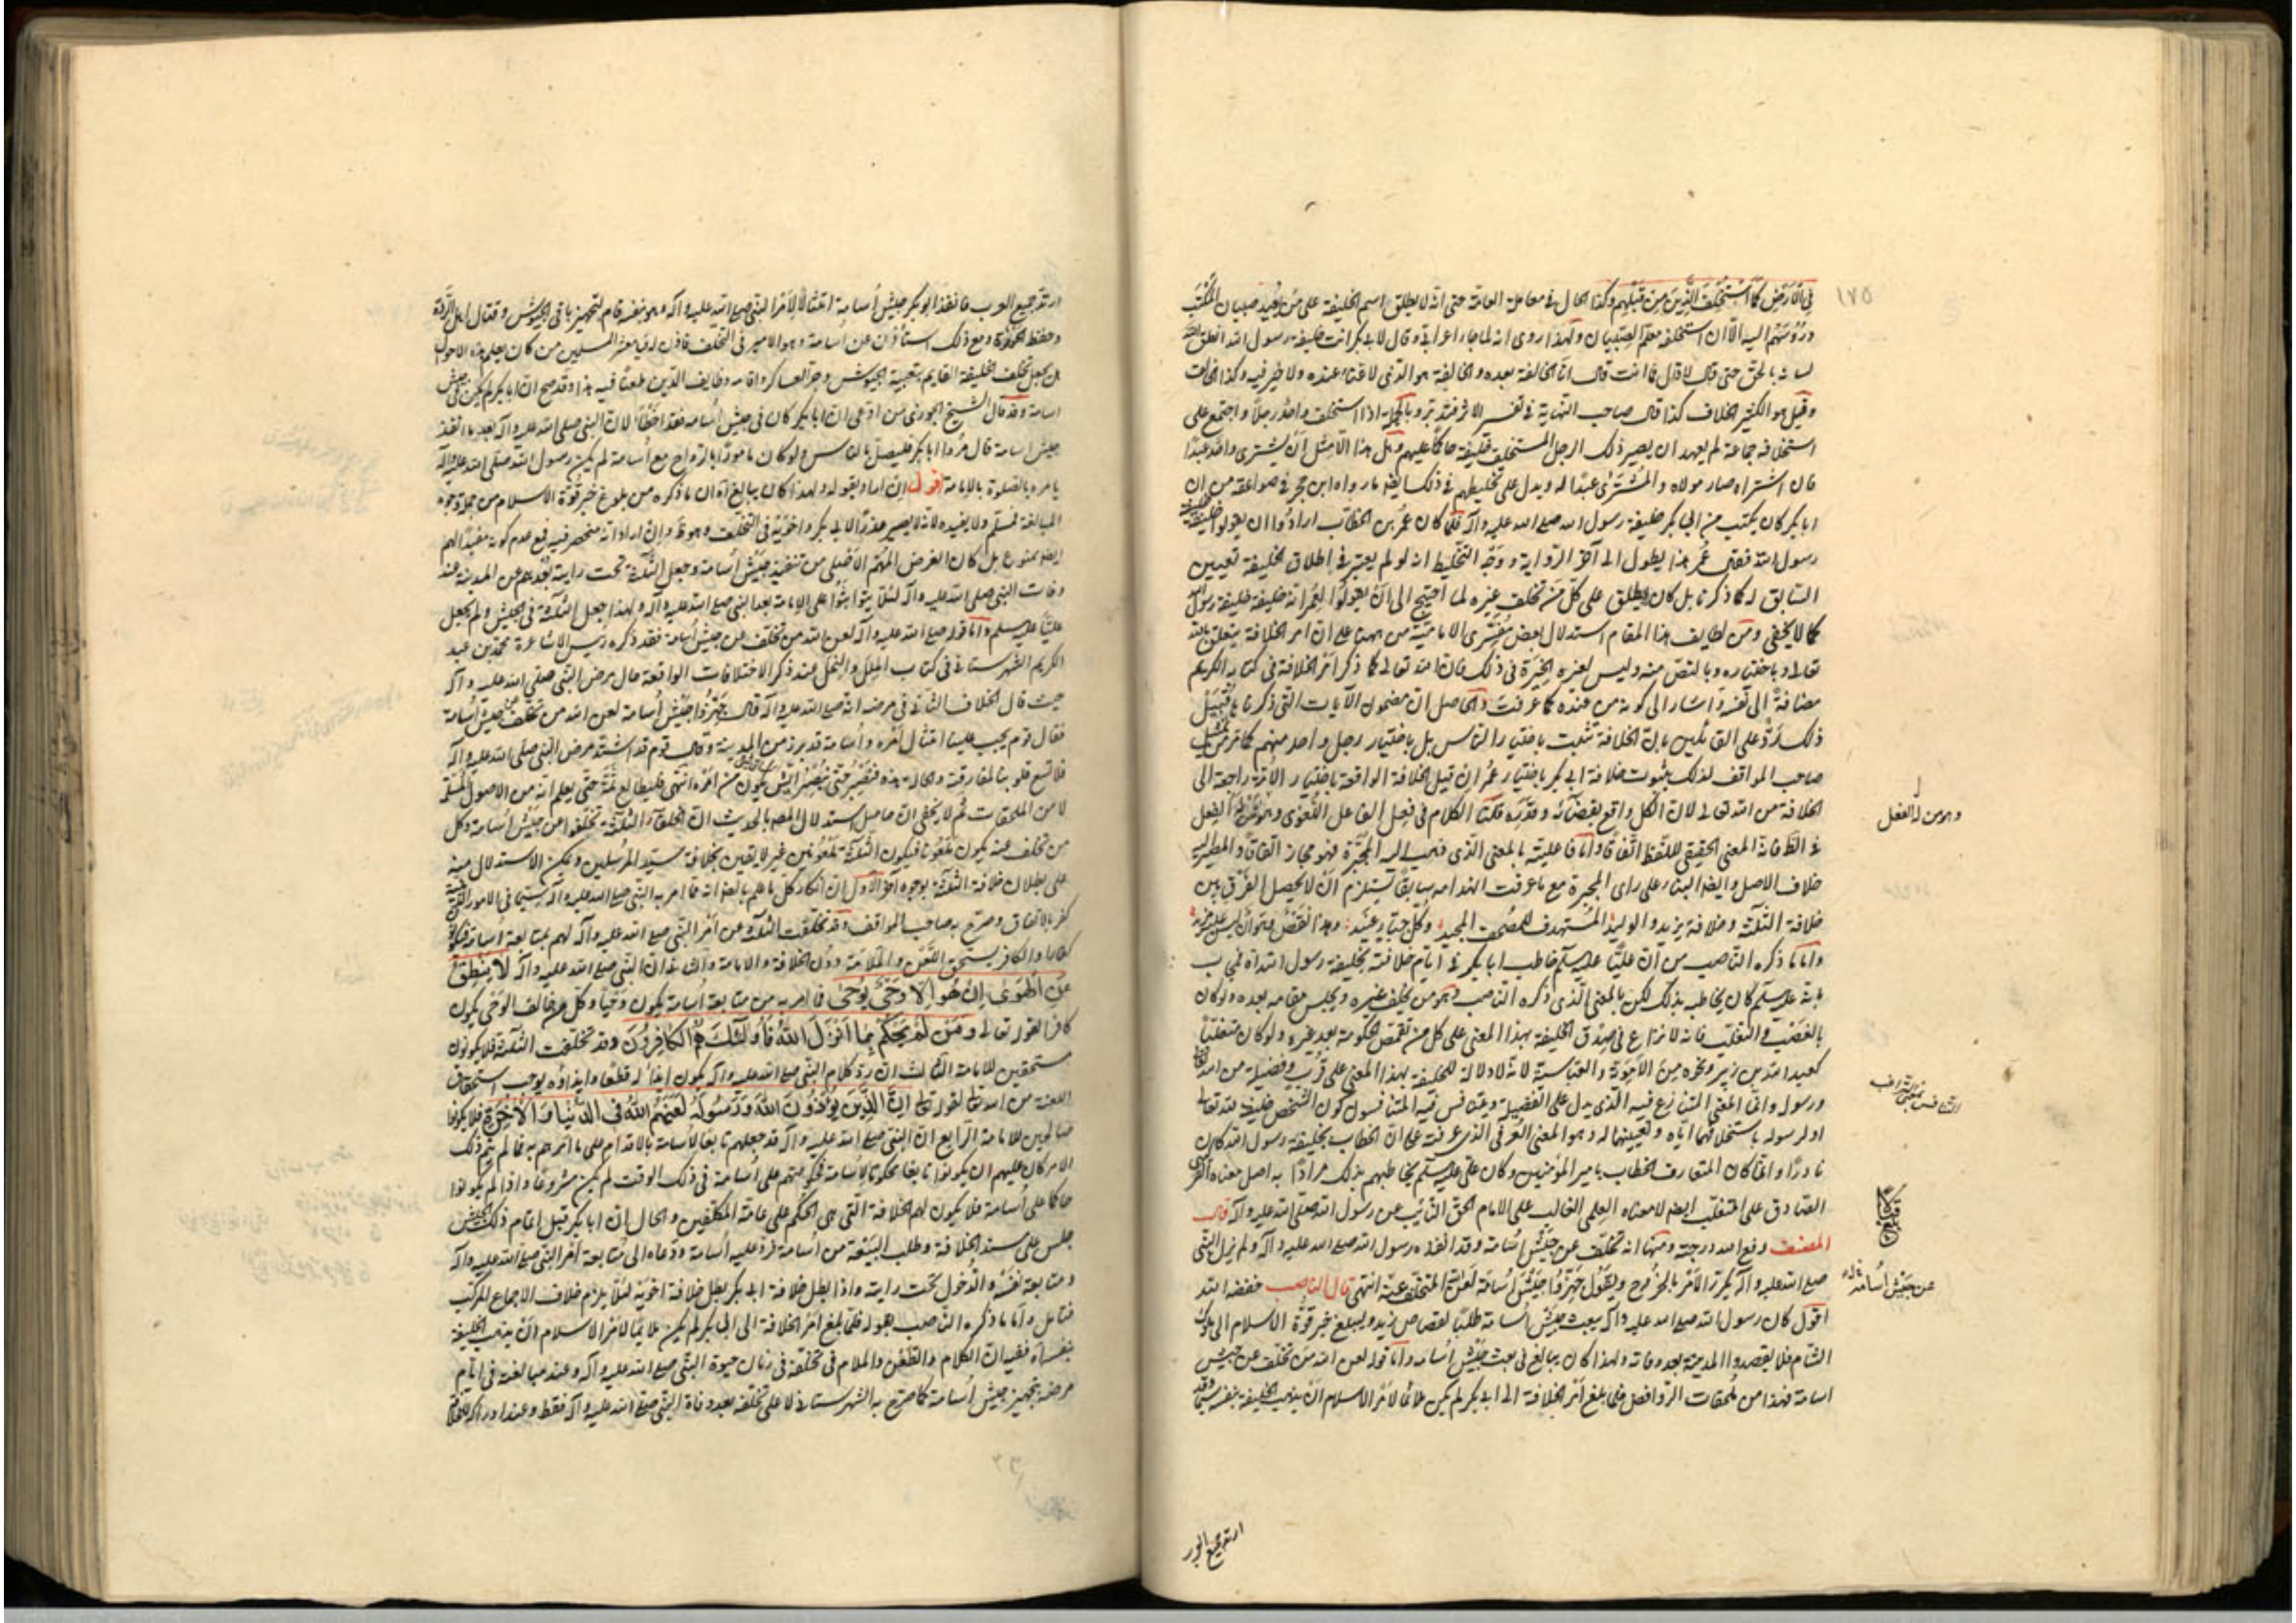 ١٧٥
في الأرض كما استخلف الذين من قبلهم وكذا الحال في معاملة العامة حتى انه لا يطلق اسم الخليفة على من يعيد صبيان المكتب
دروسهم اليه الا ان استخلفه معلم الصبيان ولهذا روى انه لما جاء اعرابي وقال لابي بكر انت خليفة رسول الله انطق الله
لسانه بالحق حتى قال لا قال فما انت قال انا الخالفة بعده والخالفة هو الذي لا غناء عنده ولا خير فيه وكذا الخالف
وقيل هو الكثير الخلاف كذا قال صاحب النهاية في تفسير الاثر فتدبر وبالجملة اذا استخلف واحد رجلا واجتمع على
استخلافه جماعة لم يعهد ان يصير ذلك الرجل المستخلف خليفة حاكما عليهم وهل هذا الا مثل ان يشترى واحد عبدا
قال اشتراه صار مولاه والمشترى عبدا له ويدل على تخليطهم في ذلك ايضا ما رواه ابن حجر في صواعقه من ان
ابا بكر كان يكتب من ابي بكر خليفة رسول الله صلى الله عليه وآله فلما كان عمر بن الخطاب ارادوا ان يقولوا خليفة خليفة
رسول الله فقال عمر هذا يطول الى آخر الرواية ووجه التخليط انه لو لم يعتبر في اطلاق الخليفة تعيين
السابق له كما ذكرنا بل كان يطلق على كل من تخلف غيره لما احتيج الى ان يقولوا لعمر انه خليفة خليفة رسول الله
كما لا يخفى ومن لطايف هذا المقام استدلال بعض مفسرى الامامية من ههنا على ان امر الخلافة يتعلق بالله
تعالى وباختياره وبالنص منه وليس لغيره الخيرة في ذلك فان الله تعالى كما ذكر امر الخلافة في كتابه الكريم
مضافة الى نفسه واشار الى كونه من عنده كما عرفت والحاصل ان مضمون الآيات التي ذكرناها
ذلك رد على القائلين بان الخلافة تثبت باختيار الناس بل باختيار رجل واحد منهم كما مر من تمثيل
صاحب المواقف لذلك بثبوت خلافة ابي بكر باختيار عمر ان قيل الخلافة الواقعة باختيار الامة راجعة الى
الخلافة من الله تعالى لان الكل واقع بقضائه وقدره قلنا الكلام في فعل الفاعل اللغوى
في الظ فانه المعنى الحقيقي للفظ اتفاقا واما فاعليته بالمعنى الذي ذهب اليه المجبرة فهو مجاز اتفاقا والمصير اليه
خلاف الاصل وايضا البناء على راى المجبرة مع ما عرفت انهدامه سابقا يستلزم ان لا يحصل الفرق بين
خلافة الثلثة وخلافة يزيد والوليد المستهدف للمصحف المجيد وكل جبار عنيد
واما ما ذكره الناصب من ان عليا عليه السلم خاطب ابا بكر في ايام خلافته بخليفة رسول الله
بانه عليه السلم كان يخاطبه بذلك لكن بالمعنى الذي ذكره الناصب وهو من يخلف غيره ويجلس مقامه بعده ولو كان
بالغصب والتغلب فانه لا نزاع في صدق الخليفة بهذا المعنى على كل من تقمص الحكومة بعد غيره ولو كان متغلبا
كعبد الله بن زبير ونحوه من الاموية والعباسية لانه لا دلالة للخليفة بهذا المعنى على قرب وفضيلة من الله تعالى
ورسوله وانما المعنى المتنازع فيه الذي يدل على الفضيلة ويتنافس فيه المتنافسون كون الشخص خليفة لله تعالى
او لرسوله باستخلافهما اياه وتعيينهما له وهو المعنى العرفي الذي عرفته على ان الخطاب بخليفة رسول الله كان
نادرا وانما كان المتعارف الخطاب بامير المؤمنين وكان على عليه السلم يخاطبهم بذلك مرادا به اصل معناه
الصادق على المتغلب ايضا لا معناه العلمي الغالب على الامام الحق النايب عن رسول الله صلى الله عليه وآله قال
المصنف رفع الله درجته ومنها انه تخلف عن جيش اسامة وقد انفذه رسول الله صلى الله عليه وآله ولم يزل النبى
صلى الله عليه وآله يكرر الامر بالخروج ويقول جهزوا جيش اسامة لعن الله المتخلف عنه انتهى قال الناصب خفضه الله
اقول كان رسول الله صلى الله عليه وآله يبعث جيش اسامة طلبا لقصاص زيد ويبلغ خبر قوة الاسلام الى ملوك
الشام فلا يقصدوا المدينة بعد وفاته ولهذا كان يبالغ في بعث جيش اسامة واما قوله لعن الله من تخلف عن جيش
اسامة فهذا من ملحقات الروافض فلما بلغ امر الخلافة الى ابي بكر لم يكن ملائما لامر الاسلام ان يذهب الخليفة بنفسه سيما وقد
ارتد جميع العر
عن جيش اسامة
ارتد جميع العرب فانفذ ابو بكر جيش اسامة امتثالا لامر النبى صلى الله عليه وآله وهو بنفسه قام لتجهيز باقى الجيوش وقتال اهل الردة
وحفظ الحوزة ومع ذلك استأذن عن اسامة وهو الامير فى التخلف فاذن له فيا معشر المسلمين من كان يعلم هذه الاحوال
هل يجعل تخلف الخليفة القايم بتعبية الجيوش وجر العساكر واقامة وظايف الدين طعنا فيه هذا وقد صح ان ابا بكر لم يكن فى جيش
اسامة وقد قال الشيخ الجزرى من ادعى ان ابا بكر كان فى جيش اسامة فقد اخطأ لان النبى صلى الله عليه وآله بعد ما انفذ
جيش اسامة قال مروا ابا بكر فليصل بالناس ولو كان مامورا بالرواح مع اسامة لم يكن رسول الله صلى الله عليه وآله
يامره بالصلوة بالامامة اقول ان اراد بقوله ولهذا كان يبالغ اه ان ما ذكره من بلوغ خبر قوة الاسلام من جملة وجوه
المبالغة فمسلم ولا يفيده لانه لا يصير عذرا لابى بكر واخويه فى التخلف وهو ظ وان اراد انه منحصر فيه فمع عدم كونه مفيدا لهم
ايضا ممنوع بل كان الغرض المهم الاصلى من تنفيذ جيش اسامة وجعل الثلثة تحت رايته بعدهم عن المدينة عند
وفات النبى صلى الله عليه وآله لئلا يتواثبوا على الامامة بعد النبى صلى الله عليه وآله ولهذا جعل الثلثة فى الجيش ولم يجعل
عليا عليه السلم واما قوله صلى الله عليه وآله لعن الله من تخلف عن جيش اسامة فقد ذكره رييس الاشاعرة محمد بن عبد
الكريم الشهرستانى فى كتاب الملل والنحل عند ذكر الاختلافات الواقعة حال مرض النبى صلى الله عليه وآله
حيث قال الخلاف الثانى فى مرضه انه صلى الله عليه وآله قال جهزوا جيش اسامة لعن الله من تخلف عن جيش اسامة
فقال قوم يجب علينا امتثال امره واسامة قد برز من المدينة وقال قوم قد اشتد مرض النبى صلى الله عليه وآله
فلا تسع قلوبنا لمفارقته والحالة هذه فنصبر حتى نبصر ايش يكون من امره انتهى فليطالع ثمة حتى يعلم انه من الاصول المسلمة
لا من الملحقات ثم لا يخفى ان حاصل استدلال المصه بالحديث ان الخلفاء الثلثة تخلفوا عن جيش اسامة وكل
من تخلف عنه يكون ملعونا فيكون الثلثة ملعونين غير لايقين بخلافة سيد المرسلين ويمكن الاستدلال منه
على بطلان خلافة الثلثة بوجوه اخر الاول ان انكار كل ما علم بالضرورة مما امر به النبى صلى الله عليه وآله سيما فى الامور الدينية
كفر بالاتفاق وصرح به صاحب المواقف وقد تخلفت الثلثة عن امر النبى صلى الله عليه وآله لهم بمتابعة اسامة فيكونوا
كفارا والكافر يستحق اللعن والملامة دون الخلافة والامامة والثانى ان النبى صلى الله عليه وآله لا ينطق
عن الهوى ان هو الا وحى يوحى فامره من متابعة اسامة يكون وحيا وكل من خالف الوحى يكون
كافرا لقوله تعالى ومن لم يحكم بما انزل الله فاولئك هم الكافرون وقد تخلفت الثلثة فلا يكونون
مستحقين للامامة الثالث ان رد كلام النبى صلى الله عليه وآله يكون ايذاء له قطعا وايذاؤه يوجب استحقاق
اللعنة من الله تعالى لقوله تعالى ان الذين يؤذون الله ورسوله لعنهم الله فى الدنيا والآخرة فلا يكونوا
صالحين للامامة الرابع ان النبى صلى الله عليه وآله قد جعلهم تابعا لاسامة بالاقدام على ما امرهم به فما لم يتم ذلك
الامر كان عليهم ان يكونوا تابعا محكوما لاسامة فحكومتهم على اسامة فى ذلك الوقت لم يكن مشروعا واذا لم يكونوا
حاكما على اسامة فلا يكون لهم الخلافة التى هى الحكم على عامة المكلفين والحال ان ابا بكر قبل اتمام ذلك
جلس على مسند الخلافة وطلب البيعة من اسامة فرد عليه اسامة ودعاه الى متابعة امر النبى صلى الله عليه وآله
ومتابعة نفسه والدخول تحت رايته واذا بطل خلافة ابى بكر بطل خلافة اخويه لئلا يلزم خلاف الاجماع المركب
فتامل واما ما ذكره الناصب بقوله فلما بلغ امر الخلافة الى ابى بكر لم يكن ملايما لامر الاسلام ان يذهب الخليفة
بنفسه اه ففيه ان الكلام والطعن والملام فى تخلفه فى زمان حيوة النبى صلى الله عليه وآله وعند مبالغته فى ايام
مرضه بتجهيز جيش اسامة كما صرح به الشهرستانى لا على تخلفه بعد وفاة النبى صلى الله عليه وآله فقط